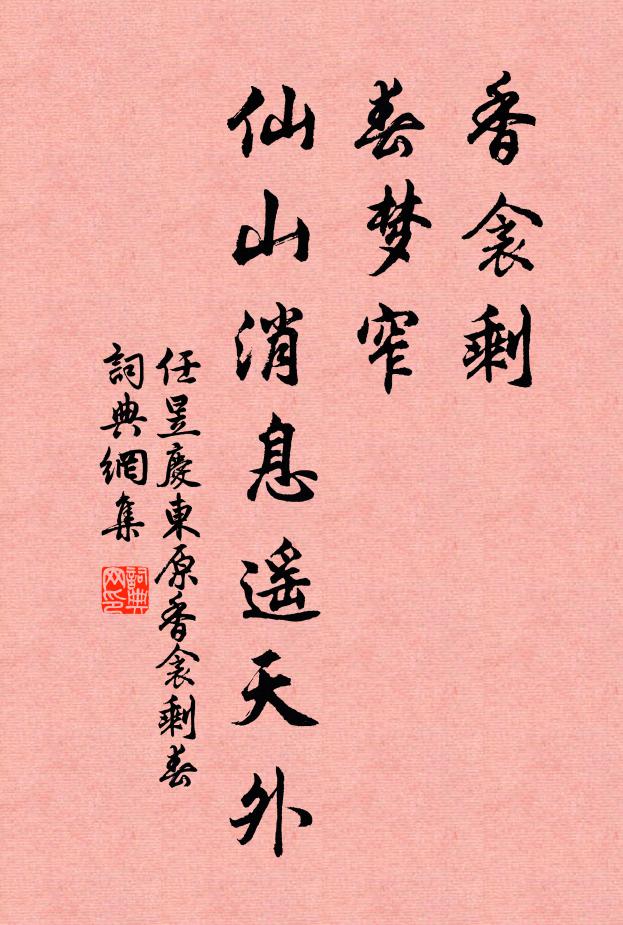 香衾剩
春梦窄
仙山消息遥天外
任昱慶東原香衾剩春
詞典網集
詞典网印